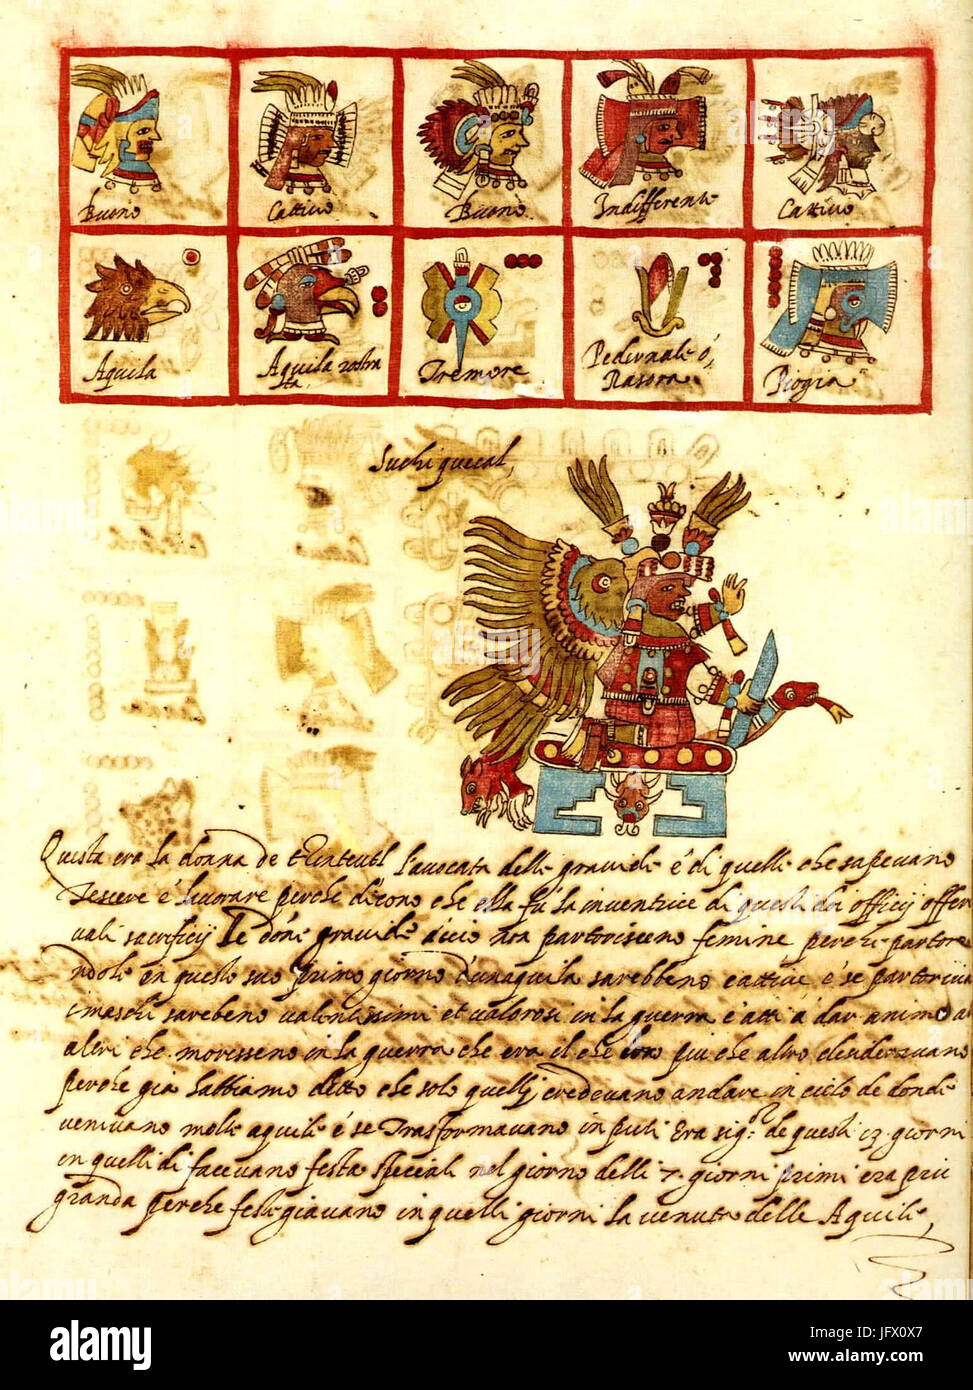 Buono
Cattiuo
Buono
Indifferente
Cattiuo
Aquila
Aquila vostra
ta,
Tremore
Pedernale ó,
Rasora
Piogia
Suchiquecal,
Questa era la donna de l'auocata delle grauide é di quelle che sapeuano
tessere é lauorare perche dicono che ella fú la inuentrice di questi doi officij offer
uali sacrificij le donne grauide accio non partorisseno femine perche partore
ndole en questo suo primo giorno d'unaquila sarebbeno cattiue é se partoriua
maschi sarebeno ualentissimi et ualorosi in la guerra é atti á dar animo a
altri che morisseno in la guerra che era il che piu che altro desiderauano
perche gia habbiamo detto che solo quelli credeuano andare in cielo de donde
ueniuano molte aquile é se trasformauano in puti Era sig.re de questi 13. giorni
in quelli di faceuano festa speciali nel giorno delli 7. giorni primi era piu
granda perche festegiauano in quelli giorni la uenuta delle Aquile,
alamy
Image ID: JFX0X7
www.alamy.com